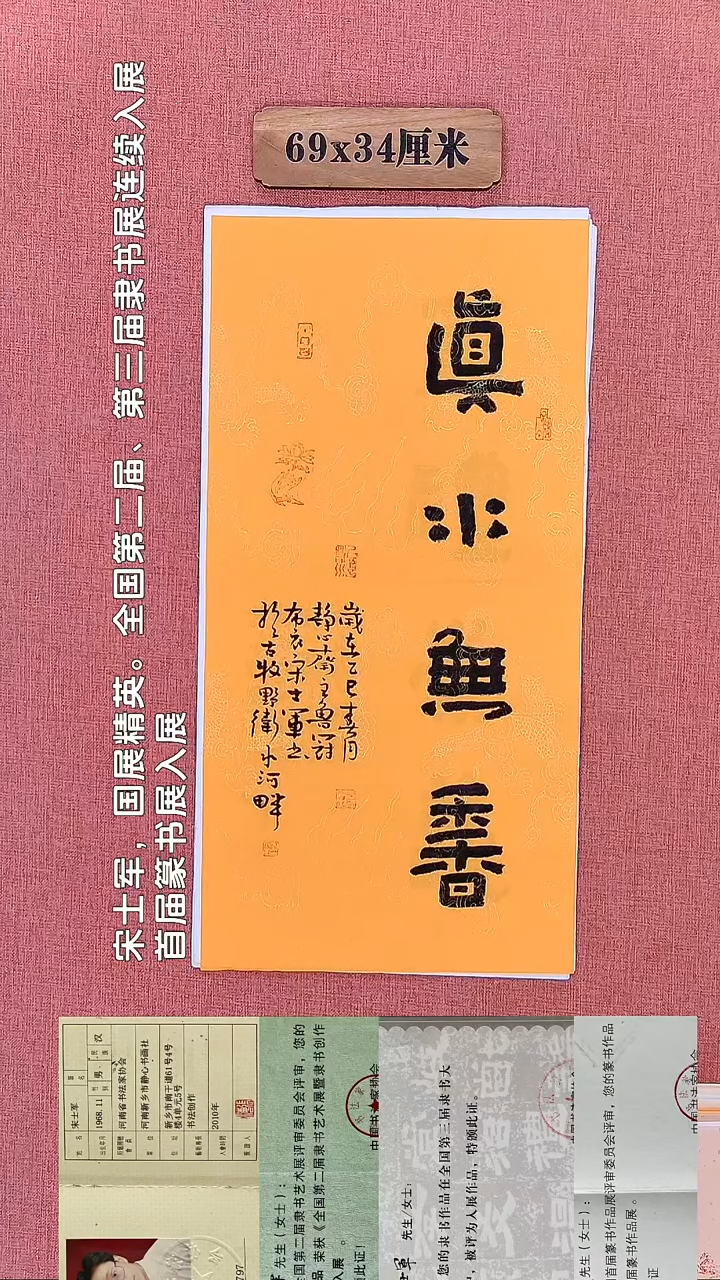 69x34厘米
宋士军，国展精英。全国第二届、第三届隶书展连续入展
首届篆书展入展
眞水無香
歲在乙巳春月
靜心齋主
布衣宋士軍書
於古牧野衛水河畔
姓名 宋士军
出生年月 1968.11 性别 男 民族 汉
河南省书法家协会会员
单位 河南新乡市静心书画社
住址 新乡市南干道61号4号楼4单元5号
书法创作
入会时间 2010年
797
先生（女士）：
全国第二届隶书艺术展评审委员会评审，您的
品 荣获《全国第二届隶书艺术展暨隶书创作
入展 。
此证！
先生/女士：
您的隶书作品在全国第三届隶书大
中，被评为入展作品，特颁此证。
生（女士）：
首届篆书作品展评审委员会评审，您的篆书作品
届篆书作品展 。
证